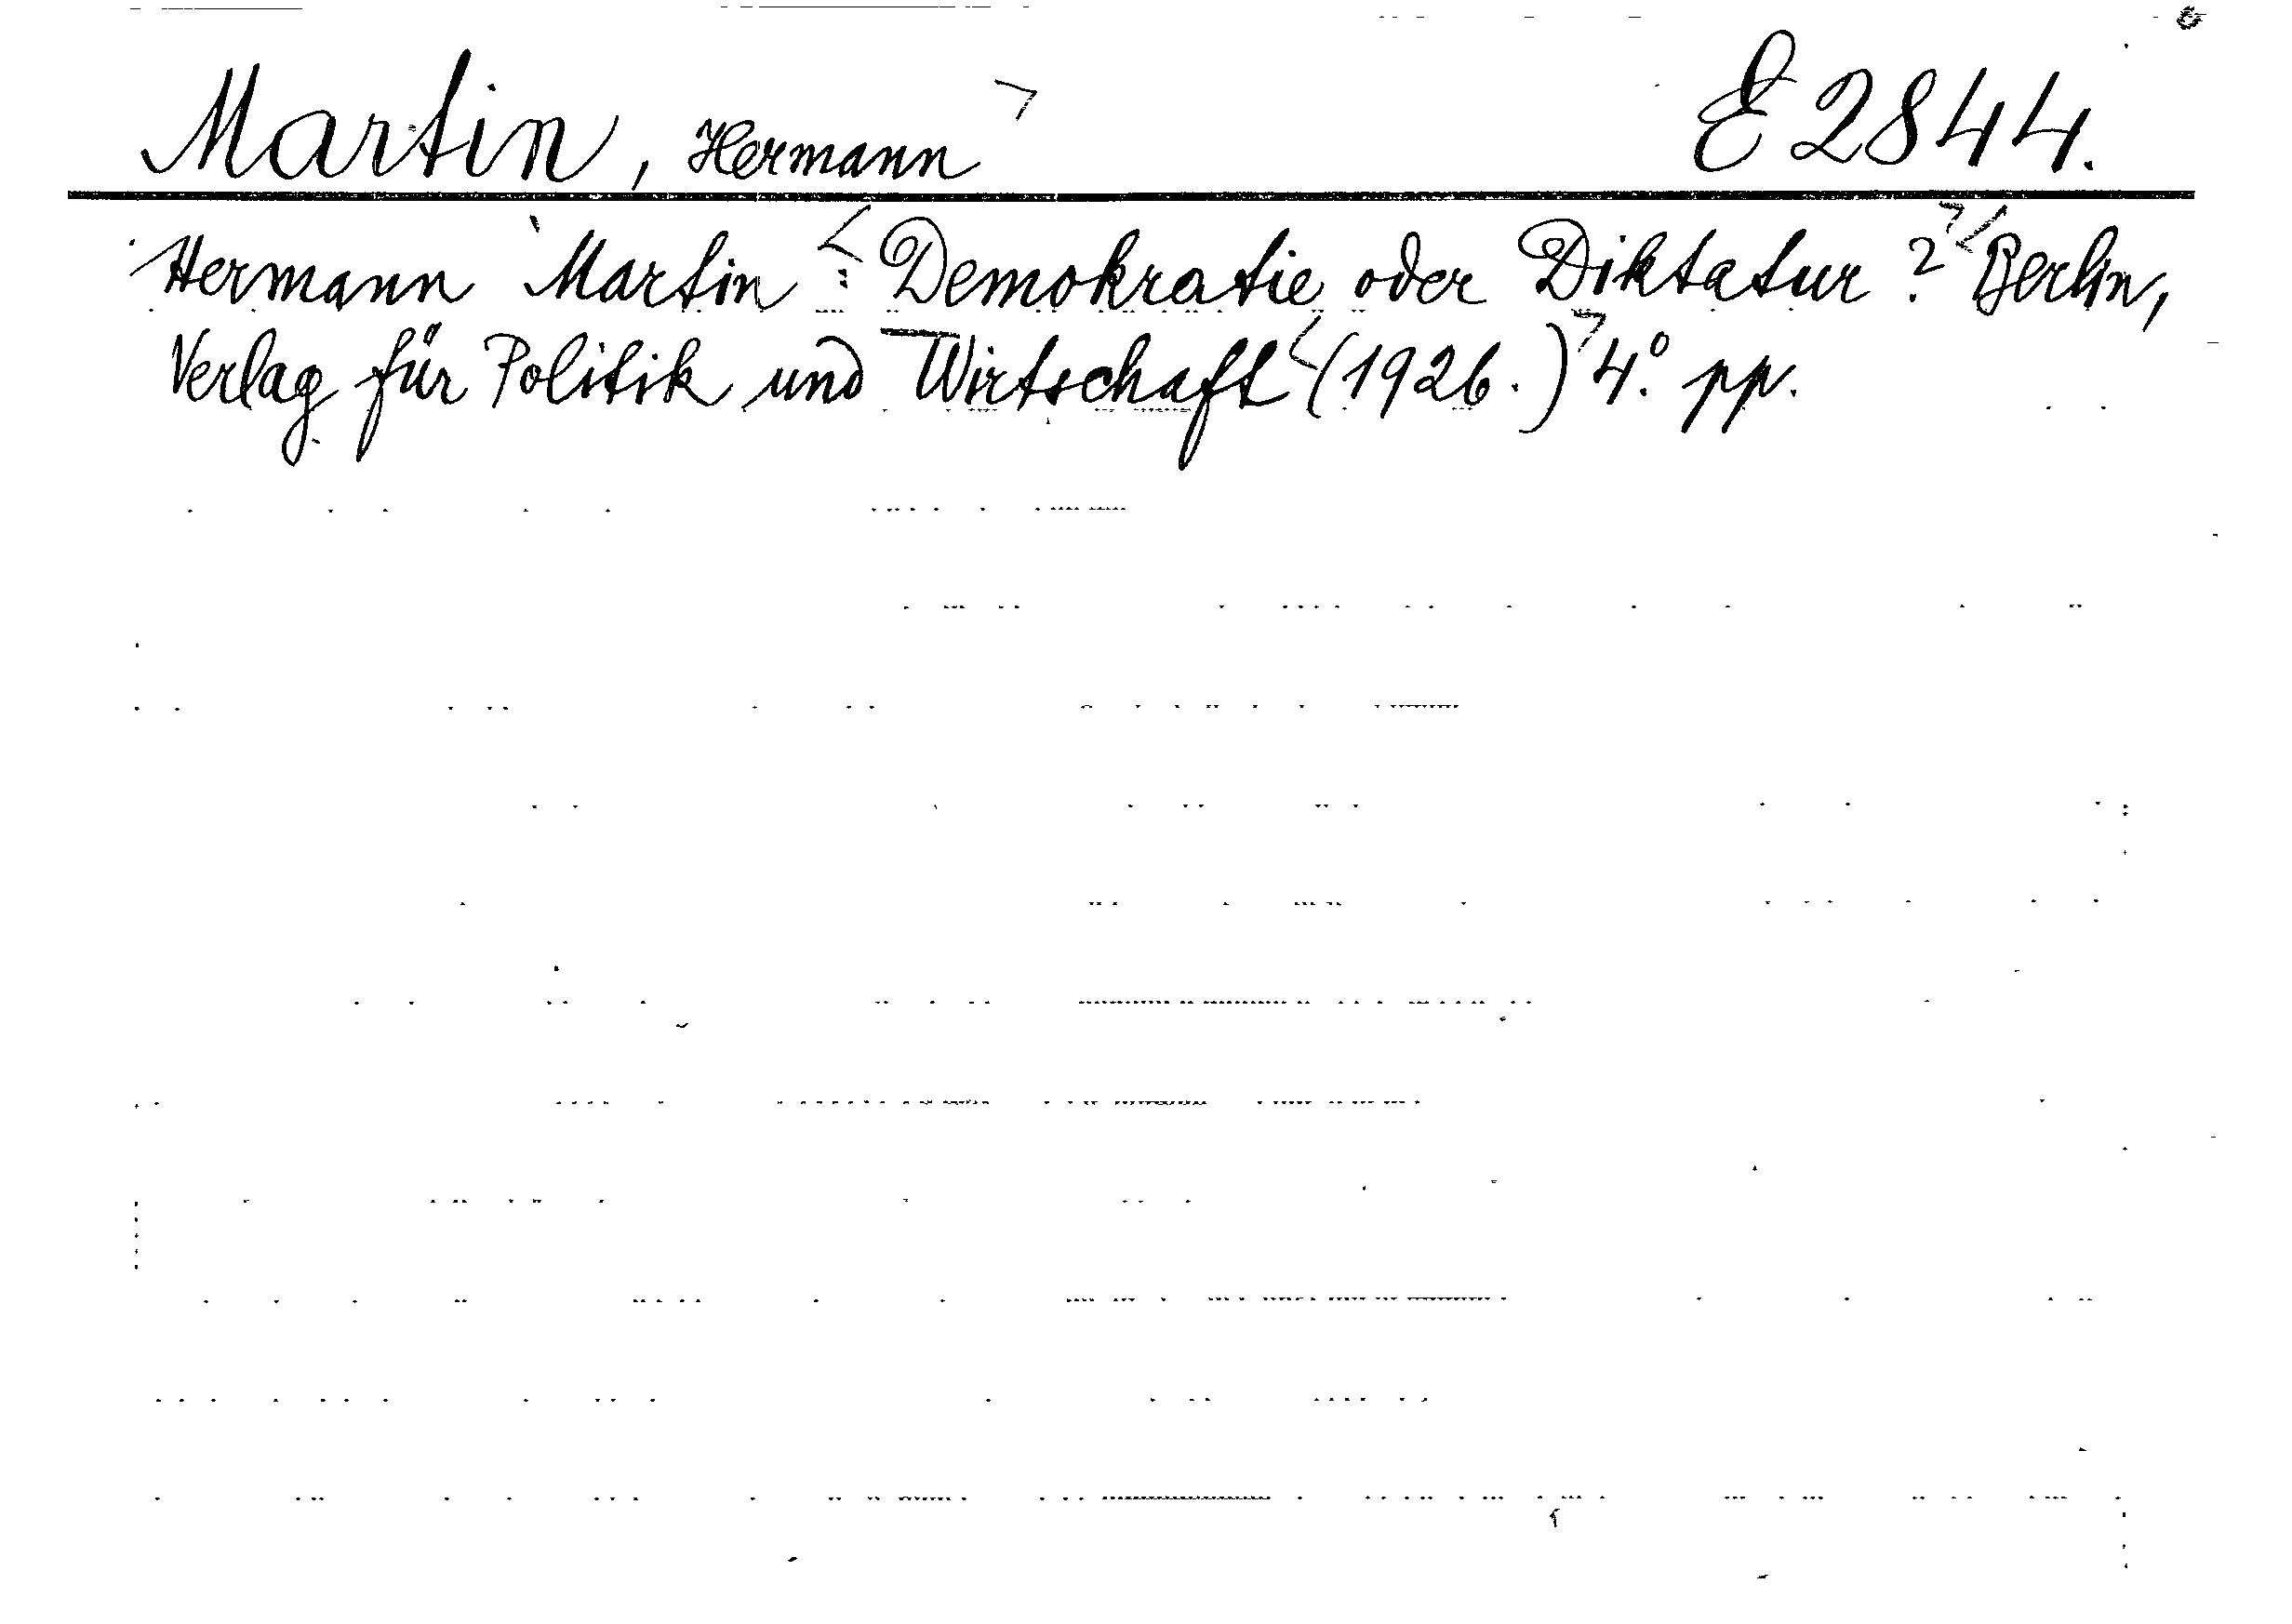 Martin, Hermann E 2844.
Hermann Martin: Demokratie oder Diktatur? Berlin,
Verlag für Politik und Wirtschaft (1926.) 4.° pp.